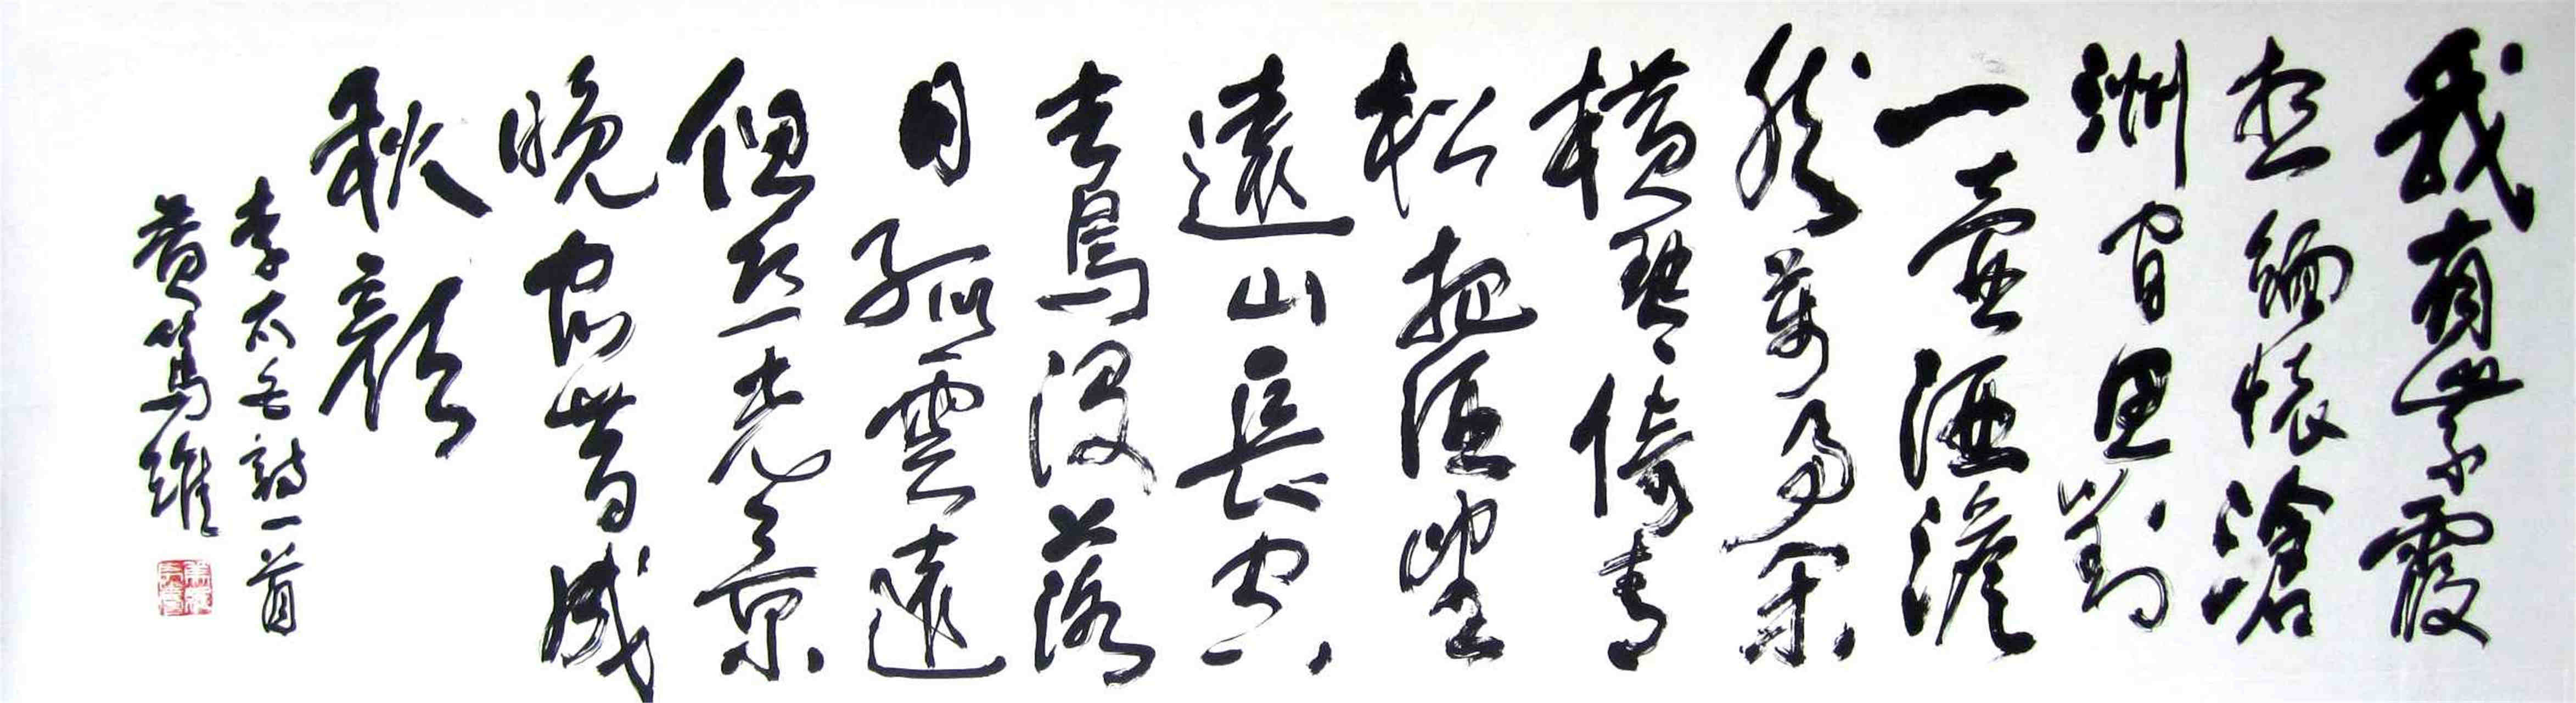 我有紫霞
想緬懷滄
洲間思對
一壺酒澹
然萬
橫琴倚青
松把酒望
遠山長空
去鳥沒落
日孤雲還
但恐光景
晚宿昔成
秋顏
李太白詩一首
黃篤維